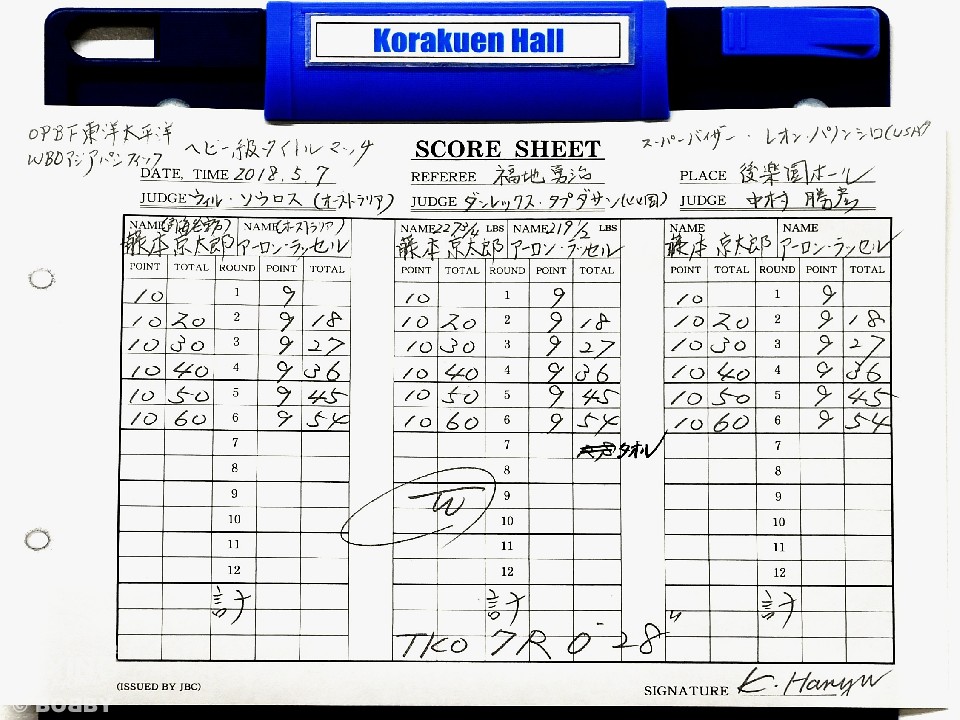 Korakuen Hall
OPBF東洋太平洋
WBOアジアパシフィック ヘビー級タイトルマッチ SCORE SHEET スーパーバイザー・レオン・パノンシロ(USA)
DATE, TIME 2018.5.7 REFEREE 福地勇治 PLACE 後楽園ホール
JUDGE ウィル・ソウロス(オーストラリア) JUDGE JUDGE 中村勝彦
NAME NAME(オーストラリア) NAME 227 3/4 LBS NAME 219 1/2 LBS NAME NAME
藤本京太郎 アーロン・ラッセル 藤本京太郎 アーロン・ラッセル 藤本京太郎 アーロン・ラッセル
POINT TOTAL ROUND POINT TOTAL POINT TOTAL ROUND POINT TOTAL POINT TOTAL ROUND POINT TOTAL
10 1 9 10 1 9 10 1 9
10 20 2 9 18 10 20 2 9 18 10 20 2 9 18
10 30 3 9 27 10 30 3 9 27 10 30 3 9 27
10 40 4 9 36 10 40 4 9 36 10 40 4 9 36
10 50 5 9 45 10 50 5 9 45 10 50 5 9 45
10 60 6 9 54 10 60 6 9 54 10 60 6 9 54
7 7 タオル 7
8 8 8
9 W 9 9
10 10 10
11 11 11
12 12 12
計 計 計
TKO 7R 0-28
(ISSUED BY JBC) SIGNATURE
© BOBBY